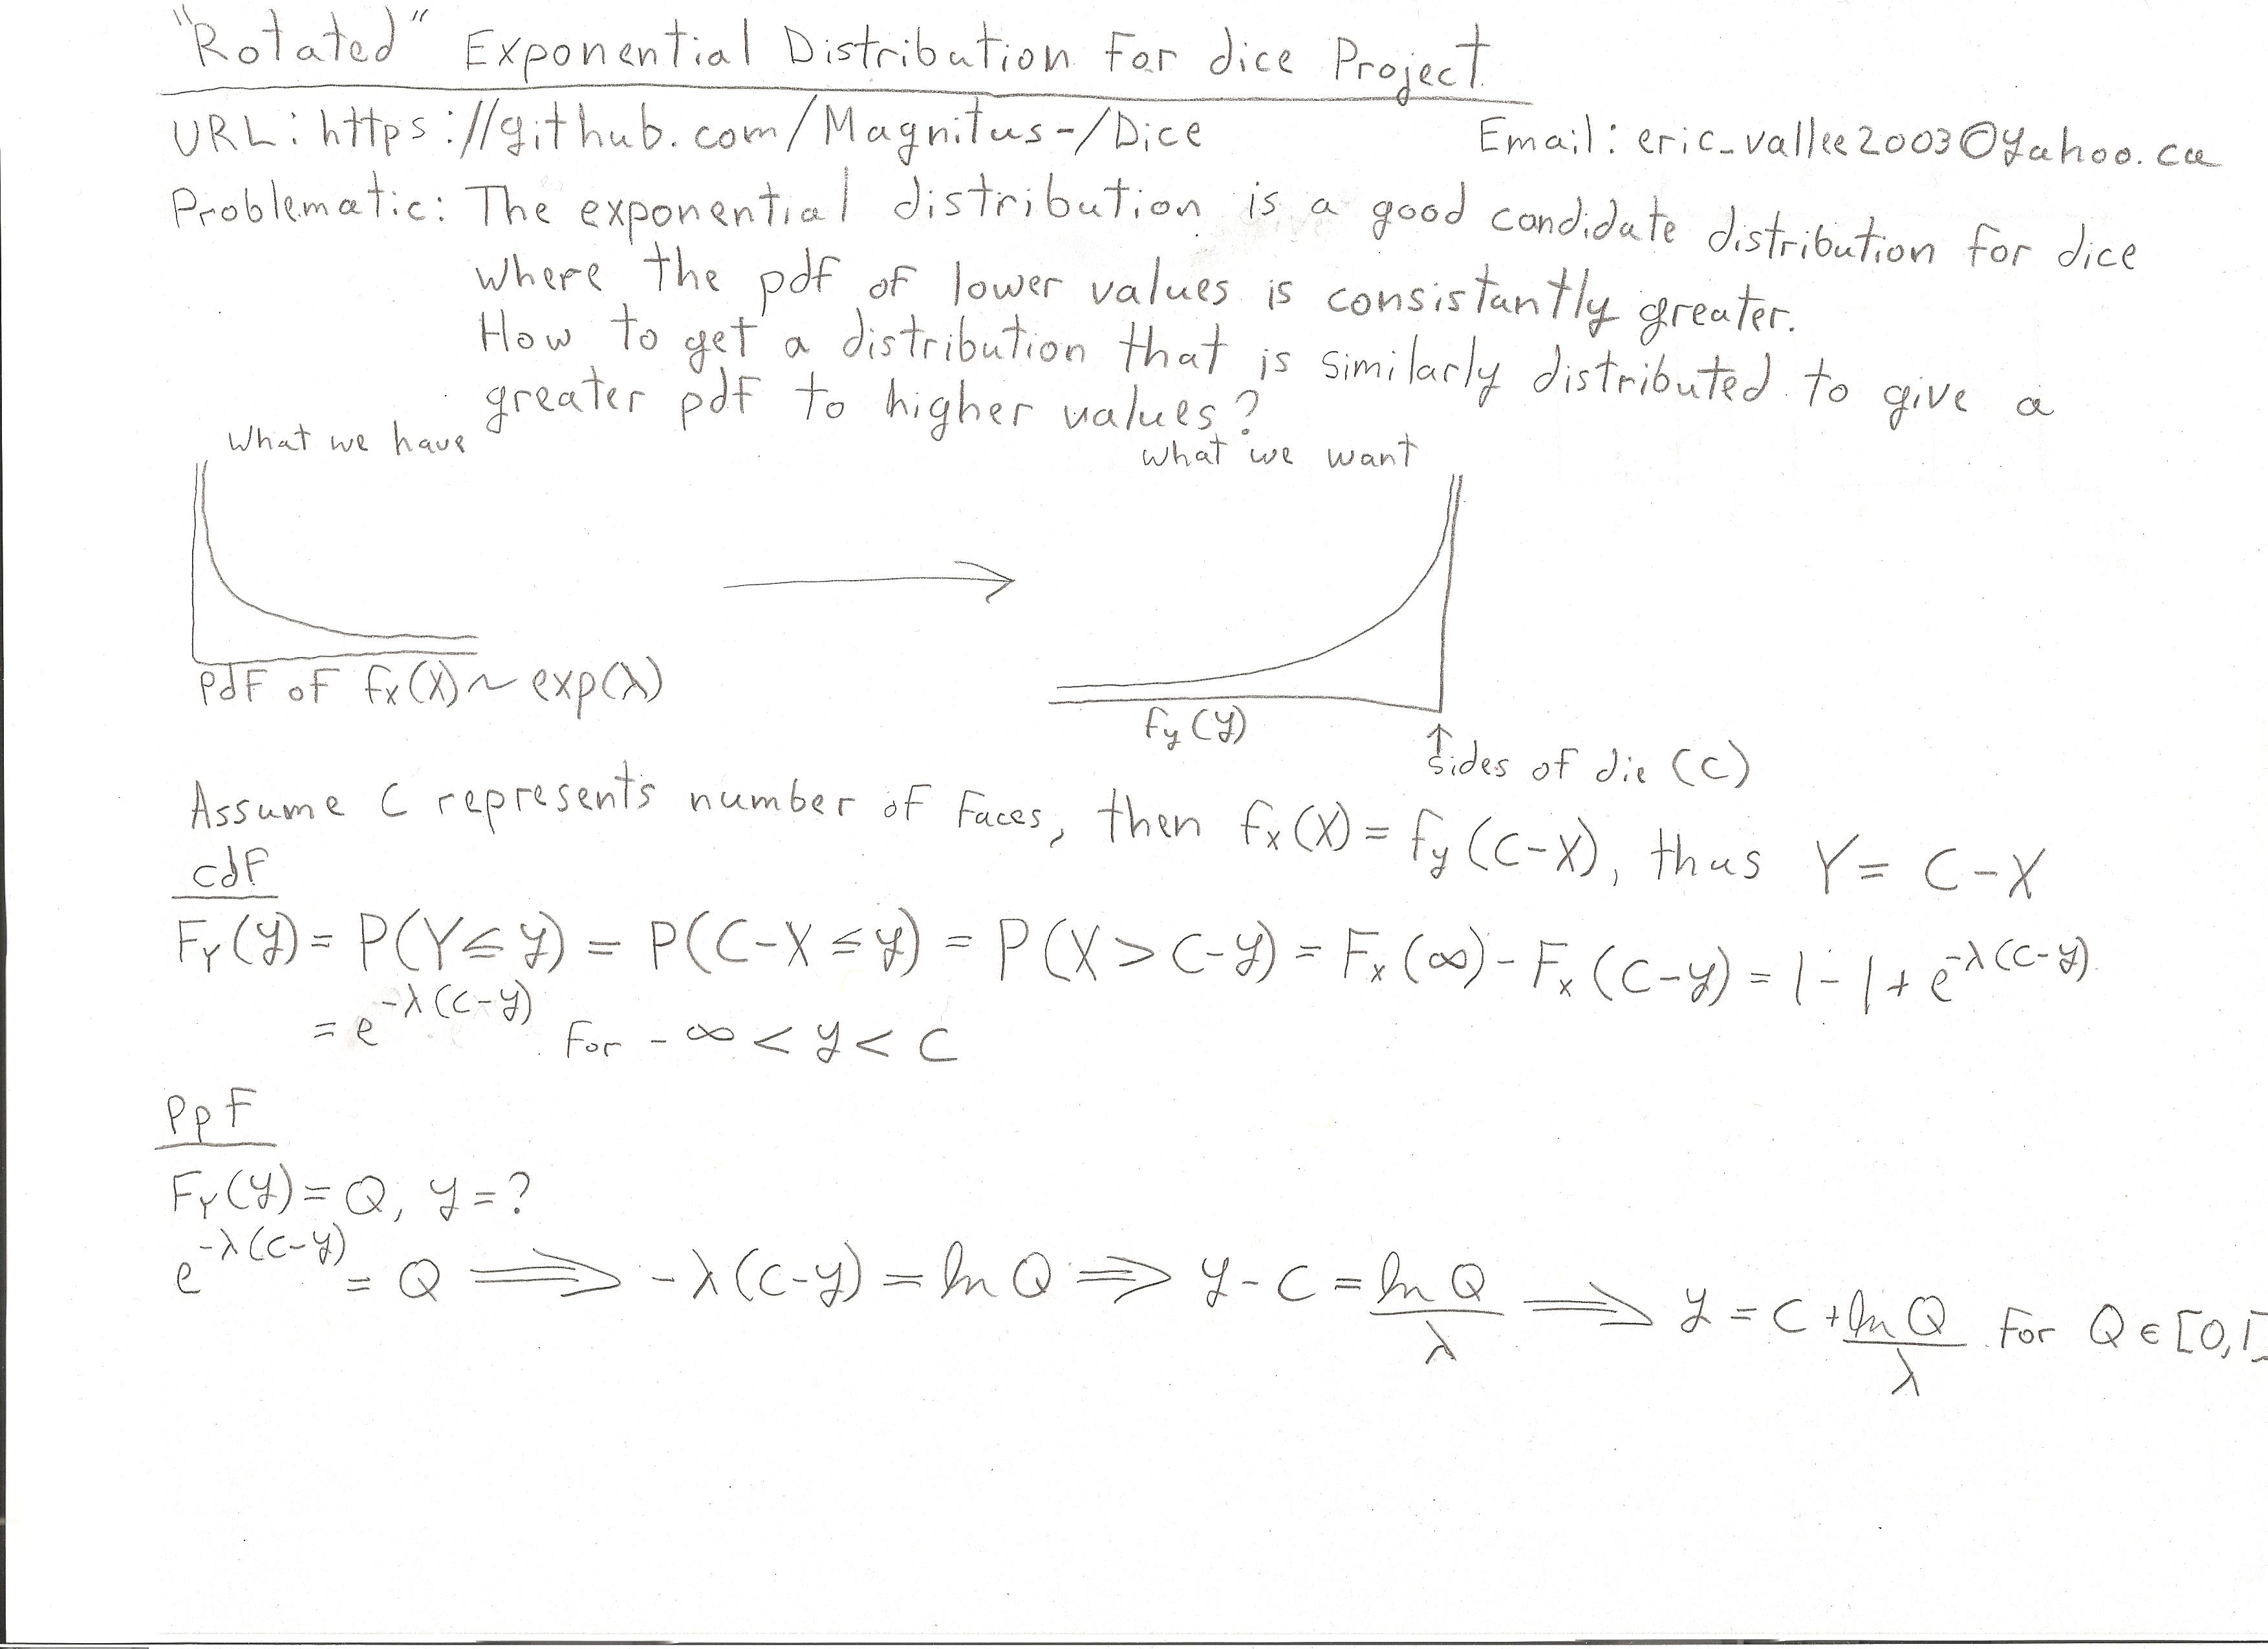 "Rotated" Exponential Distribution For dice Project
URL: https://github.com/Magnitus-/Dice Email: eric_vallee2003@yahoo.ca
Problematic: The exponential distribution is a good candidate distribution for dice
where the pdf of lower values is consistantly greater.
How to get a distribution that is similarly distributed to give a
greater pdf to higher values?
What we have
What we want
pdf of fx(X) ~ exp(λ)
fy(y)
↑
sides of die (C)
Assume C represents number of Faces, then fx(X) = fy(C-X), thus Y = C-X
cdf
FY(y) = P(Y ≤ y) = P(C-X ≤ y) = P(X > C-y) = Fx(∞) - Fx(C-y) = 1 - 1 + e^-λ(C-y)
= e^-λ(C-y) For -∞ < y < C
PpF
FY(y) = Q, y = ?
e^-λ(C-y) = Q ⟹ -λ(C-y) = ln Q ⟹ y - C = ln Q / λ ⟹ y = C + ln Q / λ For Q ∈ [0,1]